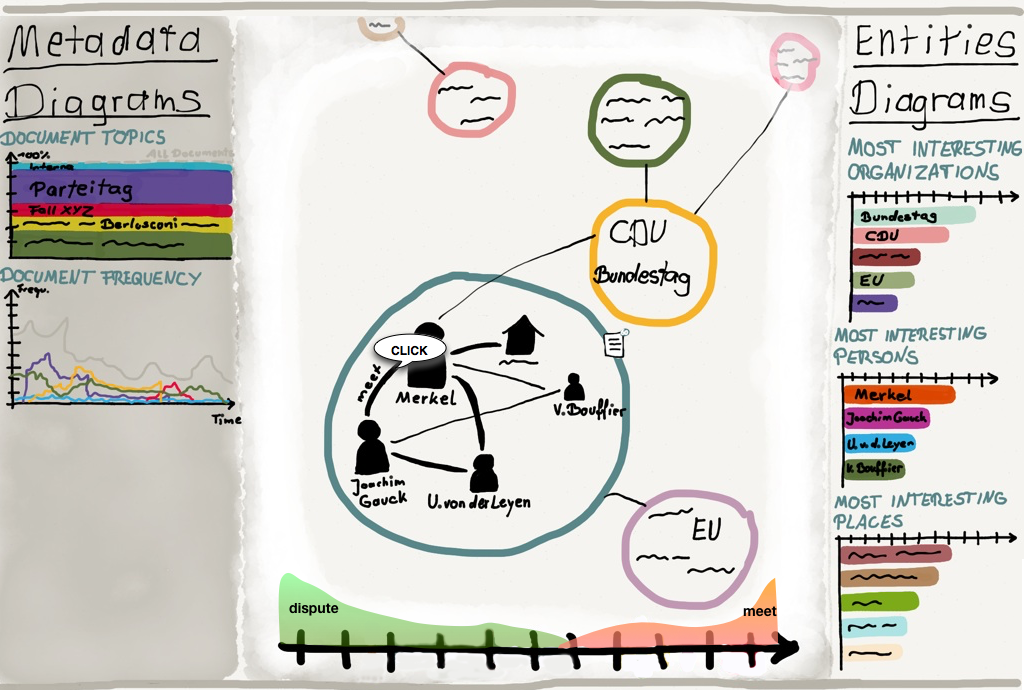 Metadata
Diagrams
DOCUMENT TOPICS
100%
ALL Documents
Interna
Parteitag
Fall XYZ
Berlusconi
DOCUMENT FREQUENCY
Frequ.
Time
CDU
Bundestag
CLICK
meet
Merkel
V. Bouffier
Joachim
Gauck
U. von der Leyen
EU
dispute
meet
Entities
Diagrams
MOST INTERESTING
ORGANIZATIONS
Bundestag
CDU
EU
MOST INTERESTING
PERSONS
Merkel
Joachim Gauck
U. v. d. Leyen
V. Bouffier
MOST INTERESTING
PLACES